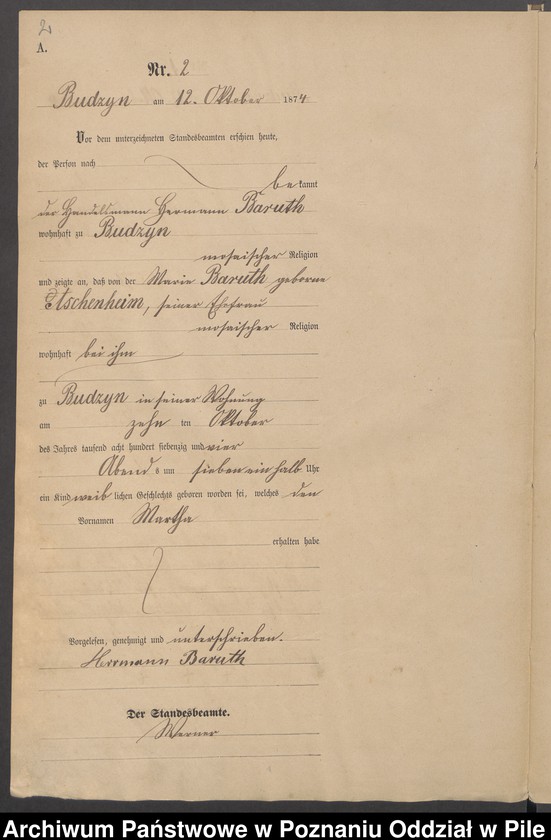 2
A.
Nr. 2
Budzyn am 12. Oktober 1874
Vor dem unterzeichneten Standesbeamten erschien heute,
der Person nach
bekannt
der Handelsmann Hermann Baruth
wohnhaft zu Budzyn
mosaischer Religion
und zeigte an, daß von der Marie Baruth geborne
Etschenheim, seiner Ehefrau
mosaischer Religion
wohnhaft bei ihm
zu Budzyn in seiner Wohnung
am zehn ten Oktober
des Jahres tausend acht hundert siebenzig und vier
Abends um sieben ein halb Uhr
ein Kind weiblichen Geschlechts geboren worden sei, welches den
Vornamen Martha
erhalten habe
Vorgelesen, genehmigt und unterschrieben.
Hermann Baruth
Der Standesbeamte.
Werner
Archiwum Państwowe w Poznaniu Oddział w Pile